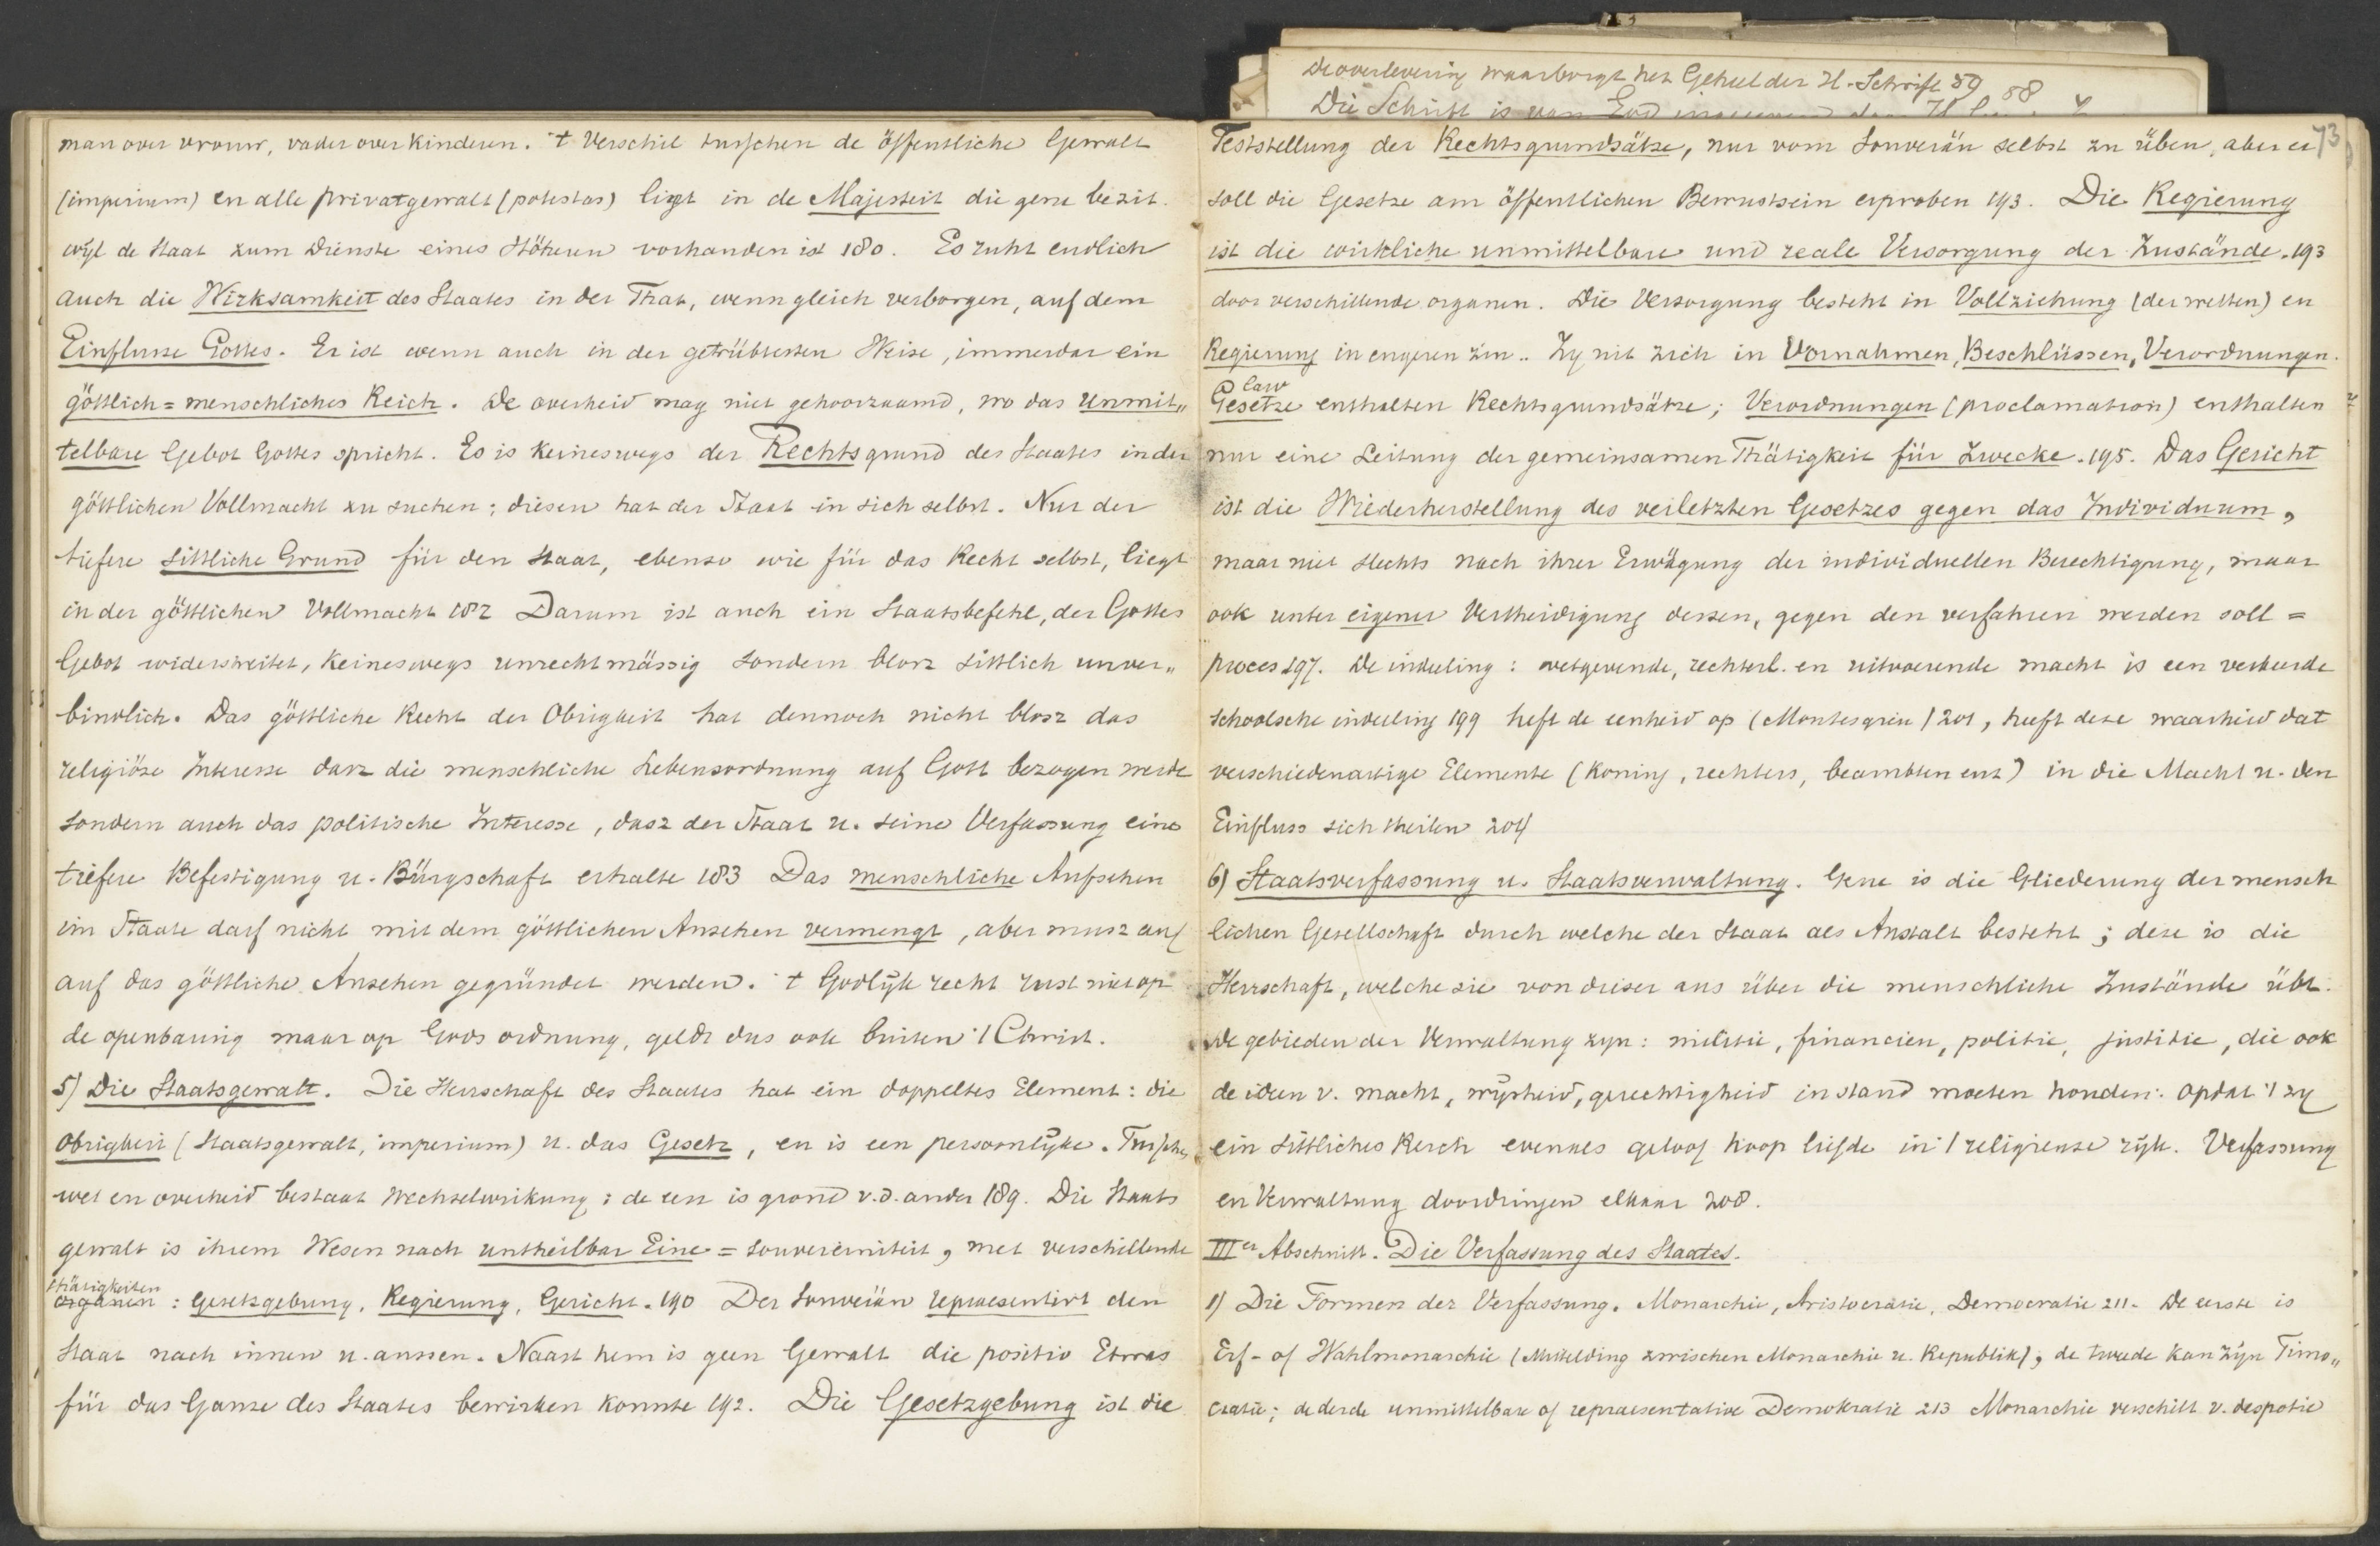 man over vrouw, vader over kinderen. 't Verschil tusschen de öffentliche Gewalt
(imperium) en alle privatgewalt (potestas) ligt in de Majesteit die gene bezit.
wyl de Staat zum Dienste eines Höheren vorhanden ist 180. Es ruht endlich
auch die Wirksamkeit des Staates in der That, wenn gleich verborgen, auf dem
Einflusse Gottes. Er ist wenn auch in der getrübtesten Weise, immerdar ein
göttlich=menschliches Reich. De overheid mag niet gehoorzaamd, wo das unmit„
telbare Gebot Gottes spricht. Es is keineswegs der Rechtsgrund des Staates in der
göttlichen Vollmacht zu suchen; diesen hat der Staat in sich selbst. Nur der
tiefere sittliche Grund für den Staat, ebenso wie für das Recht selbst, liegt
in der göttlichen Vollmacht 182 Darum ist auch ein Staatsbefehl, der Gottes
Gebot widerstreitet, keineswegs unrechtmässig sondern blosz sittlich unver„
bindlich. Das göttliche Recht der Obrigkeit hat dennoch nicht blosz das
religiöse Interesse dasz die menschliche Lebensordnung auf Gott bezogen werde
sondern auch das politische Interesse, dasz der Staat u. seine Verfassung eine
tiefere Befestigung u. Bürgschaft erhalte 183 Das menschliche Ansehen
im Staate darf nicht mit dem göttlichen Ansehen vermengt, aber musz auf
auf das göttliche Ansehen gegründet werden. 't Godlyk recht rust niet op
de openbaring maar op Gods ordnung, geldt dus ook buiten 't Christ.
5) Die Staatsgewalt. Die Herrschaft des Staates hat ein doppeltes Element: die
Obrigkeit (Staatsgewalt, imperium) u. das Gesetz, en is een persoonlyke. Tusschen
wet en overheid bestaat Wechselwirkung; de een is grond v.d. ander 189. Die Staats
gewalt is ihrem Wesen nach untheilbar Eine = souvereiniteit, met verschillende
thätigkeiten
organen : Gesetzgebung, Regierung, Gericht. 190 Der Souverän repraesentirt den
Staat nach innen u. aussen. Naast hem is geen Gewalt die positiv Etwas
für das Ganze des Staates bewirken konnte 192. Die Gesetzgebung ist die
de overlevering waarborgt het Geheel der H. Schrift 59 58
Die Schrift is van God
73
Feststellung der Rechtsgrundsätze, nur vom Souverän selbst zu üben, aber er
soll die Gesetze am öffentlichen Bewustsein erproben 193. Die Regierung
ist die wirkliche unmittelbare und reale Versorgung der Zustände. 193
door verschillende organen. Die Versorgung besteht in Vollziehung (der wetten) en
Regierung in engeren zin.. Zy uit zich in Vornahmen, Beschlüssen, Verordnungen.
law
Gesetze enthalten Rechtsgrundsätze; Verordnungen (proclamation) enthalten
nur eine Leitung der gemeinsamen Thätigkeit für Zwecke. 195. Das Gericht
ist die Wiederherstellung des verletzten Gesetzes gegen das Individuum,
maar niet slechts nach ihrer Erwägung der individuellen Berechtigung, maar
ook unter eigener Vertheidigung dessen, gegen den verfahren werden soll =
proces 197. De indeeling: wetgevende, rechterl. en uitvoerende macht is een verkeerde
schoolsche indeeling 199 heft de eenheid op (Montesquieu) 201, heeft deze waarheid dat
verschiedenartige Elemente (koning, rechters, beambten enz) in die Macht u. den
Einfluss sich theilen 204
6) Staatsverfassung u. Staatsverwaltung. Gene is die Gliederung der mensch
lichen Gesellschaft durch welche der Staat als Anstalt besteht; deze is die
Herrschaft, welche sie von dieser aus über die menschliche Zustände übt.
De gebieden der Verwaltung zyn: militie, financien, politie, justitie, die ook
de ideen v. macht, wysheid, gerechtigheid in stand moeten houden: opdat 't zy
ein sittliches Reich evenals geloof hoop liefde in 't religieuse ryk. Verfassung
en Verwaltung doordringen elkaar 208.
IIIer Abschnitt. Die Verfassung des Staates.
1) Die Formen der Verfassung. Monarchie, Aristocratie, Democratie 211. De eerste is
Erf- of Wahlmonarchie (Mittelding zwischen Monarchie u. Republik), de tweede kan zyn Timo„
cratie; de derde unmittelbare of repraesentative Demokratie 213 Monarchie verschilt v. despotie